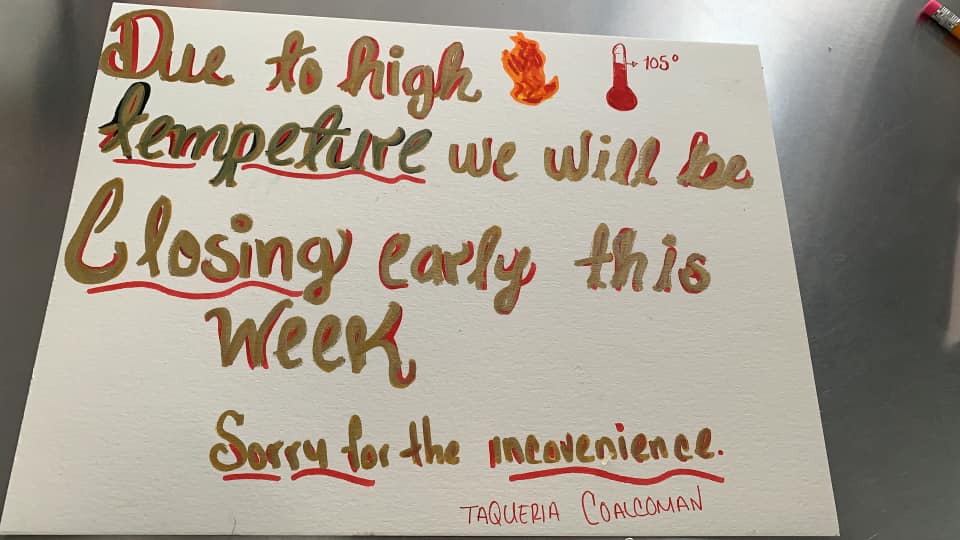 Due to high 105°
tempeture we will be
Closing early this
Week
Sorry for the incovenience.
TAQUERIA COALCOMAN